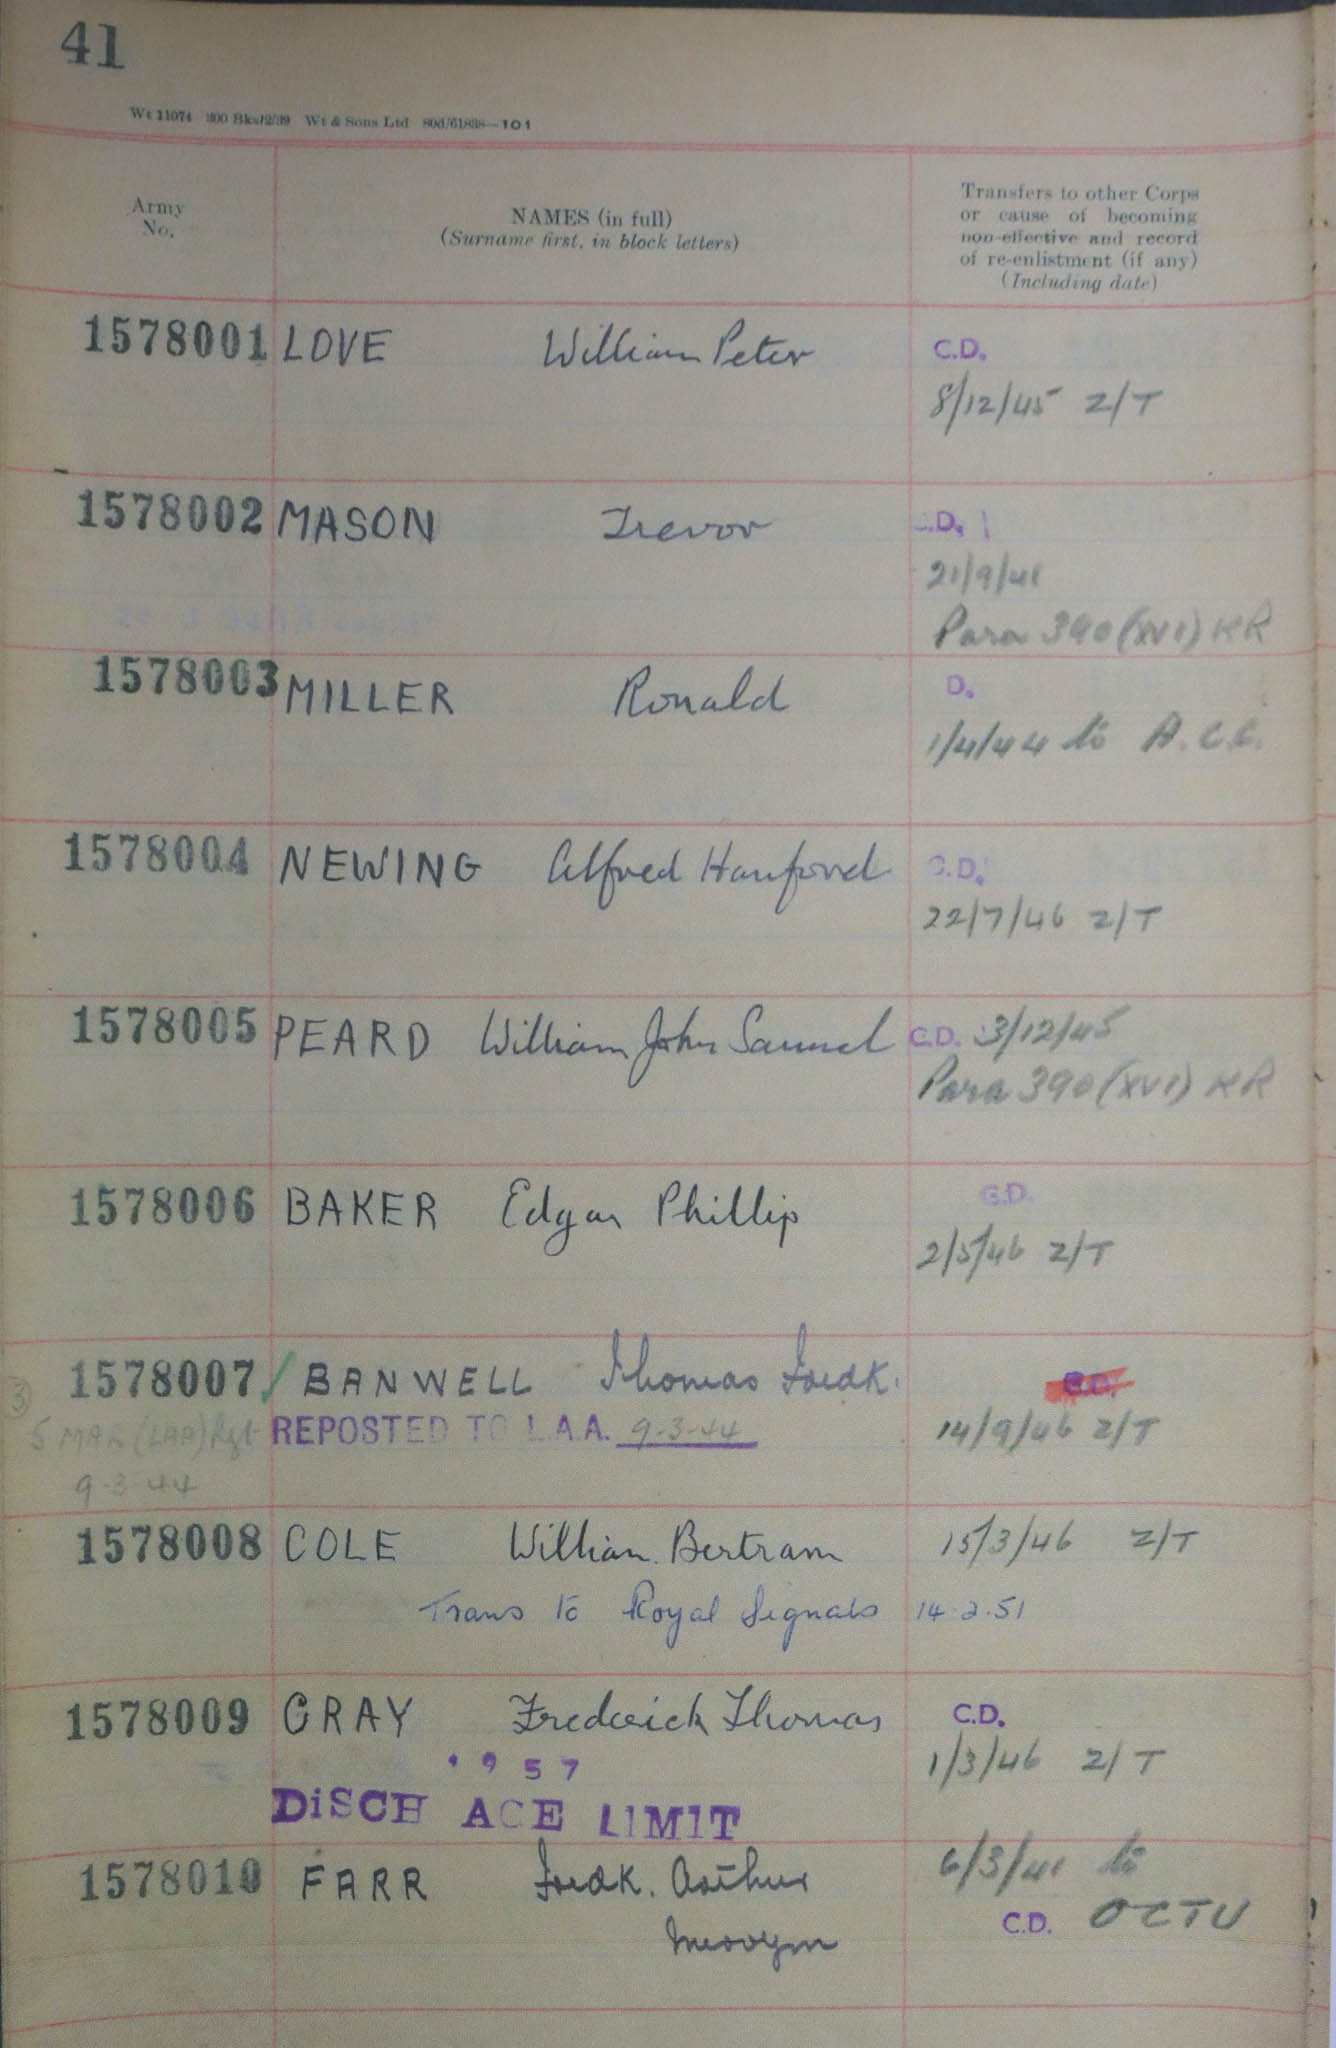 41
Wt 11074 300 Bks/2/39 Wt & Sons Ltd 80d/61838—101
Army
No.
NAMES (in full)
(Surname first, in block letters)
Transfers to other Corps
or cause of becoming
non-effective and record
of re-enlistment (if any)
(Including date)
1578001 LOVE William Peter C.D.
8/12/45 Z/T
1578002 MASON Trevor C.D.
21/9/41
Para 390 (XVI) KR
1578003 MILLER Ronald D.
1/4/44 to A.C.C.
1578004 NEWING Alfred Hanford C.D.
22/7/46 Z/T
1578005 PEARD William John Samuel C.D. 3/12/45
Para 390 (XVI) KR
1578006 BAKER Edgar Phillip C.D.
2/5/46 Z/T
1578007 / BANWELL Thomas Fredk. C.D.
3
5 MAR (LAA) Rgt REPOSTED TO L.A.A. 9-3-44 14/9/46 Z/T
9-3-44
1578008 COLE William Bertram 15/3/46 Z/T
Trans to Royal Signals 14.2.51
1578009 GRAY Frederick Thomas C.D.
1957 1/3/46 Z/T
DiSCH AGE LIMIT
1578010 FARR Fredk. Arthur 6/3/41 to
Mervyn C.D. OCTU